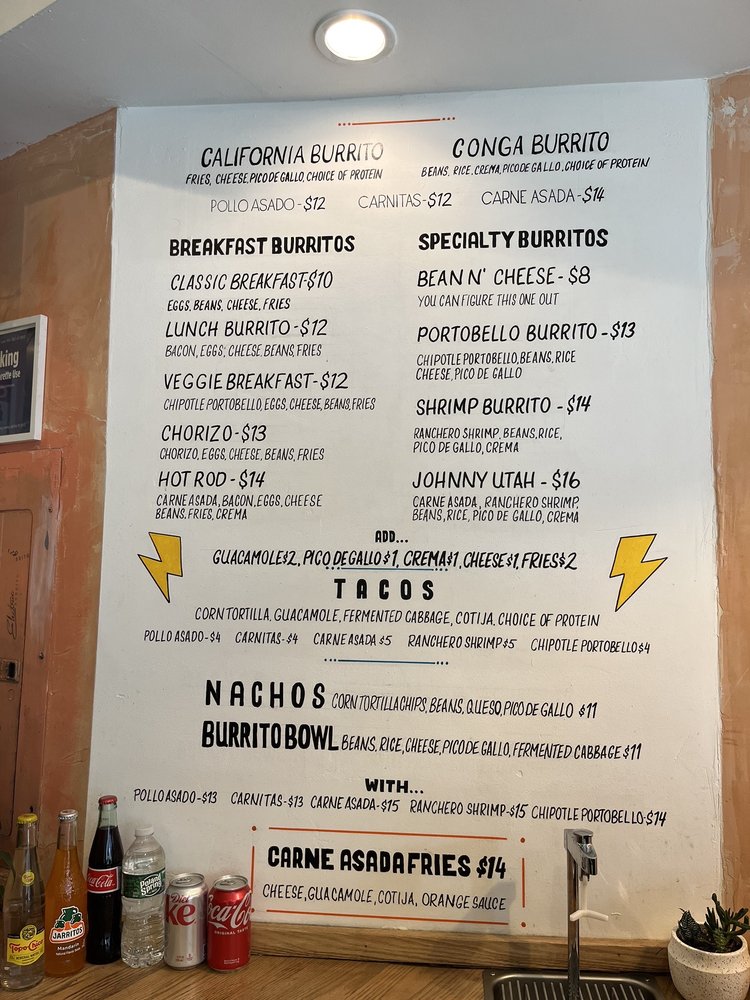 CALIFORNIA BURRITO
FRIES, CHEESE, PICO DE GALLO, CHOICE OF PROTEIN
CONGA BURRITO
BEANS, RICE, CREMA, PICO DE GALLO, CHOICE OF PROTEIN
POLLO ASADO - $12 CARNITAS - $12 CARNE ASADA - $14
BREAKFAST BURRITOS
CLASSIC BREAKFAST - $10
EGGS, BEANS, CHEESE, FRIES
LUNCH BURRITO - $12
BACON, EGGS, CHEESE, BEANS, FRIES
VEGGIE BREAKFAST - $12
CHIPOTLE PORTOBELLO, EGGS, CHEESE, BEANS, FRIES
CHORIZO - $13
CHORIZO, EGGS, CHEESE, BEANS, FRIES
HOT ROD - $14
CARNE ASADA, BACON, EGGS, CHEESE
BEANS, FRIES, CREMA
SPECIALTY BURRITOS
BEAN N' CHEESE - $8
YOU CAN FIGURE THIS ONE OUT
PORTOBELLO BURRITO - $13
CHIPOTLE PORTOBELLO, BEANS, RICE
CHEESE, PICO DE GALLO
SHRIMP BURRITO - $14
RANCHERO SHRIMP, BEANS, RICE,
PICO DE GALLO, CREMA
JOHNNY UTAH - $16
CARNE ASADA, RANCHERO SHRIMP,
BEANS, RICE, PICO DE GALLO, CREMA
ADD...
GUACAMOLE $2, PICO DE GALLO $1, CREMA $1, CHEESE $1, FRIES $2
TACOS
CORN TORTILLA, GUACAMOLE, FERMENTED CABBAGE, COTIJA, CHOICE OF PROTEIN
POLLO ASADO - $4 CARNITAS - $4 CARNE ASADA $5 RANCHERO SHRIMP $5 CHIPOTLE PORTOBELLO $4
NACHOS CORN TORTILLA CHIPS, BEANS, QUESO, PICO DE GALLO $11
BURRITO BOWL BEANS, RICE, CHEESE, PICO DE GALLO, FERMENTED CABBAGE $11
WITH...
POLLO ASADO - $13 CARNITAS - $13 CARNE ASADA - $15 RANCHERO SHRIMP - $15 CHIPOTLE PORTOBELLO - $14
CARNE ASADA FRIES $14
CHEESE, GUACAMOLE, COTIJA, ORANGE SAUCE
king
arette Use
Topo Chico
JARRITOS
Mandarin
Coca-Cola
Poland Spring
Diet
ke
Coca-Co
ORIGINAL TASTE